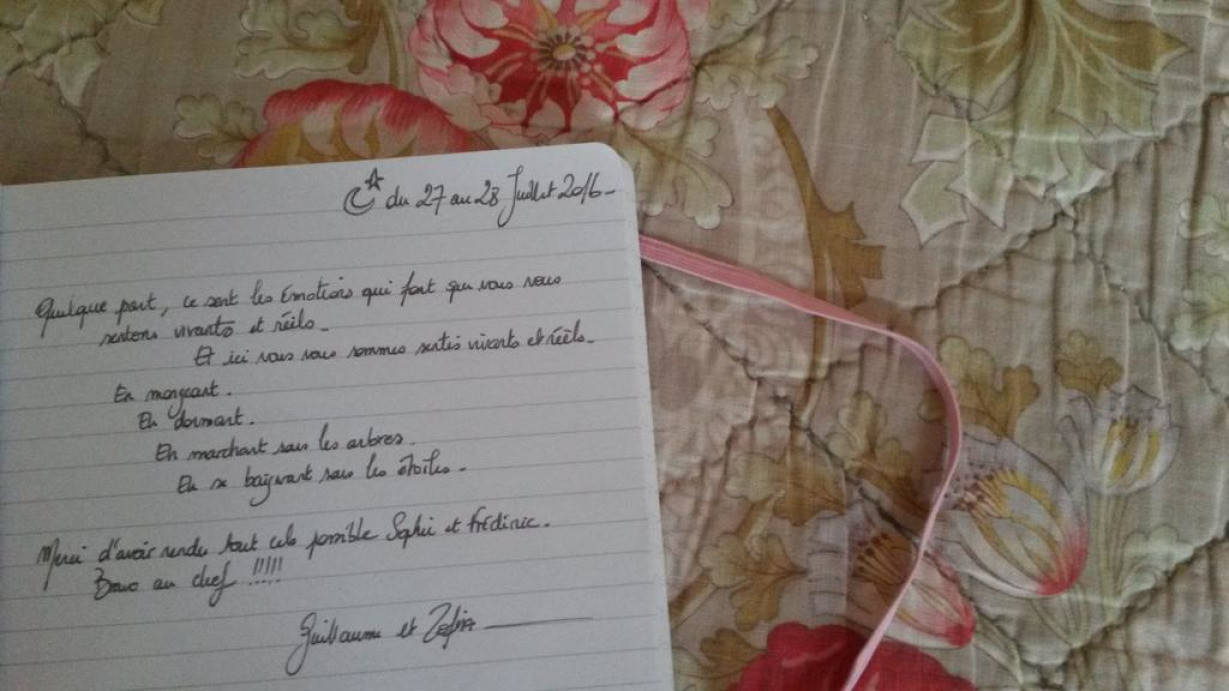 du 27 au 28 Juillet 2016-
Quelque part, ce sont les Emotions qui font que nous nous
sentons vivants et réels-
Et ici nous nous sommes sentis vivants et réels-
En mangeant.
En dormant.
En marchant sous les arbres.
En se baignant sous les étoiles-
Merci d'avoir rendu tout cela possible Sophie et Frédéric.
Bravo au chef !!!!!
Guillaume et